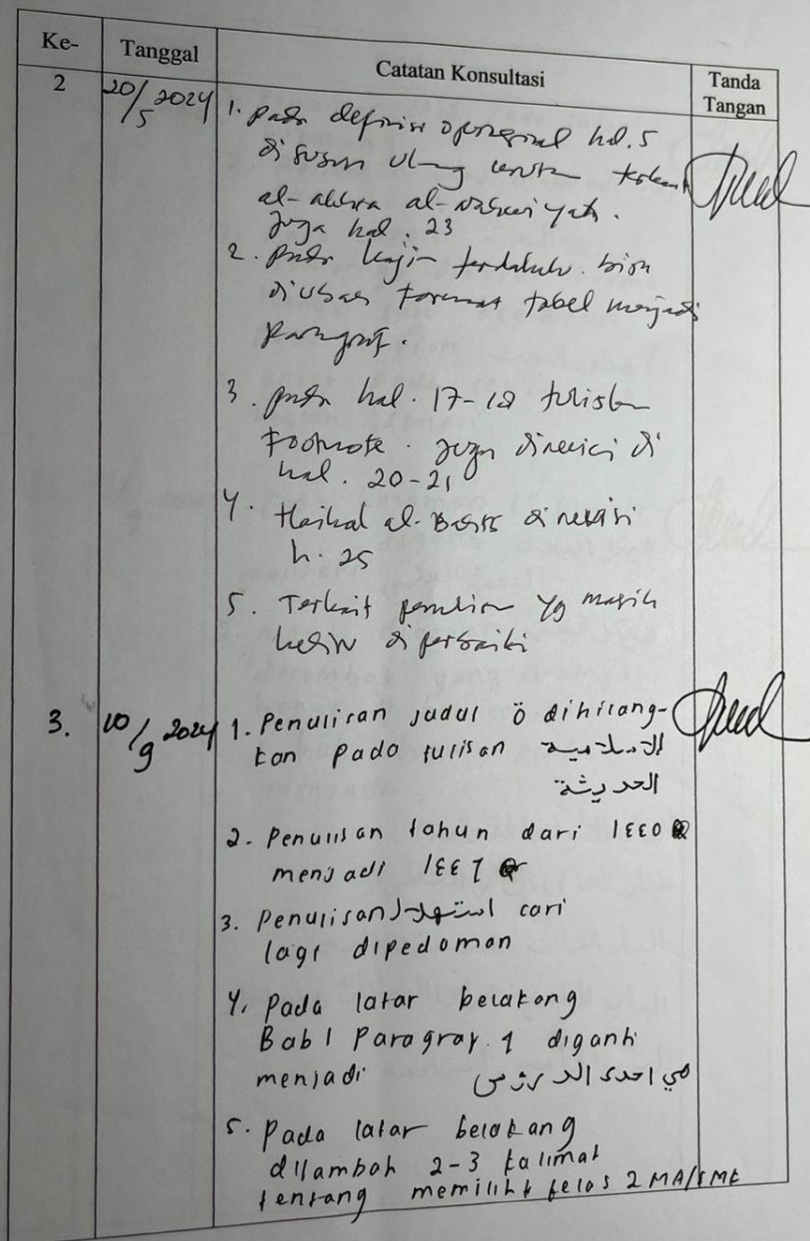 Ke- Tanggal Catatan Konsultasi Tanda Tangan
2 20/5 2024 1. pada definisi operasional hal. 5
di susun ulang urutan
al- al-
Juga hal. 23
2. pada kajian terdahulu. bisa
diubah format tabel menjadi
paragraf.
3. pada hal. 17-18 tuliskan
Footnote. juga direvisi di
hal. 20-21
4. Haikal al- direvisi
h. 25
5. Terkait penulisan yg masih
keliru diperbaiki
3. 10/9 2024 1. Penulisan judul ö dihilang-
kan pada tulisan الاسلامية
الحديثة
2. Penulisan tahun dari ١٤٤٥
menjadi ١٤٤٦
3. Penulisan استهلال cari
lagi dipedoman
4. Pada latar belakang
Bab 1 Paragraf 1 diganti
menjadi هي احدى الدروس
5. Pada latar belakang
ditambah 2-3 kalimat
tentang memilih kelas 2 MA/SMK